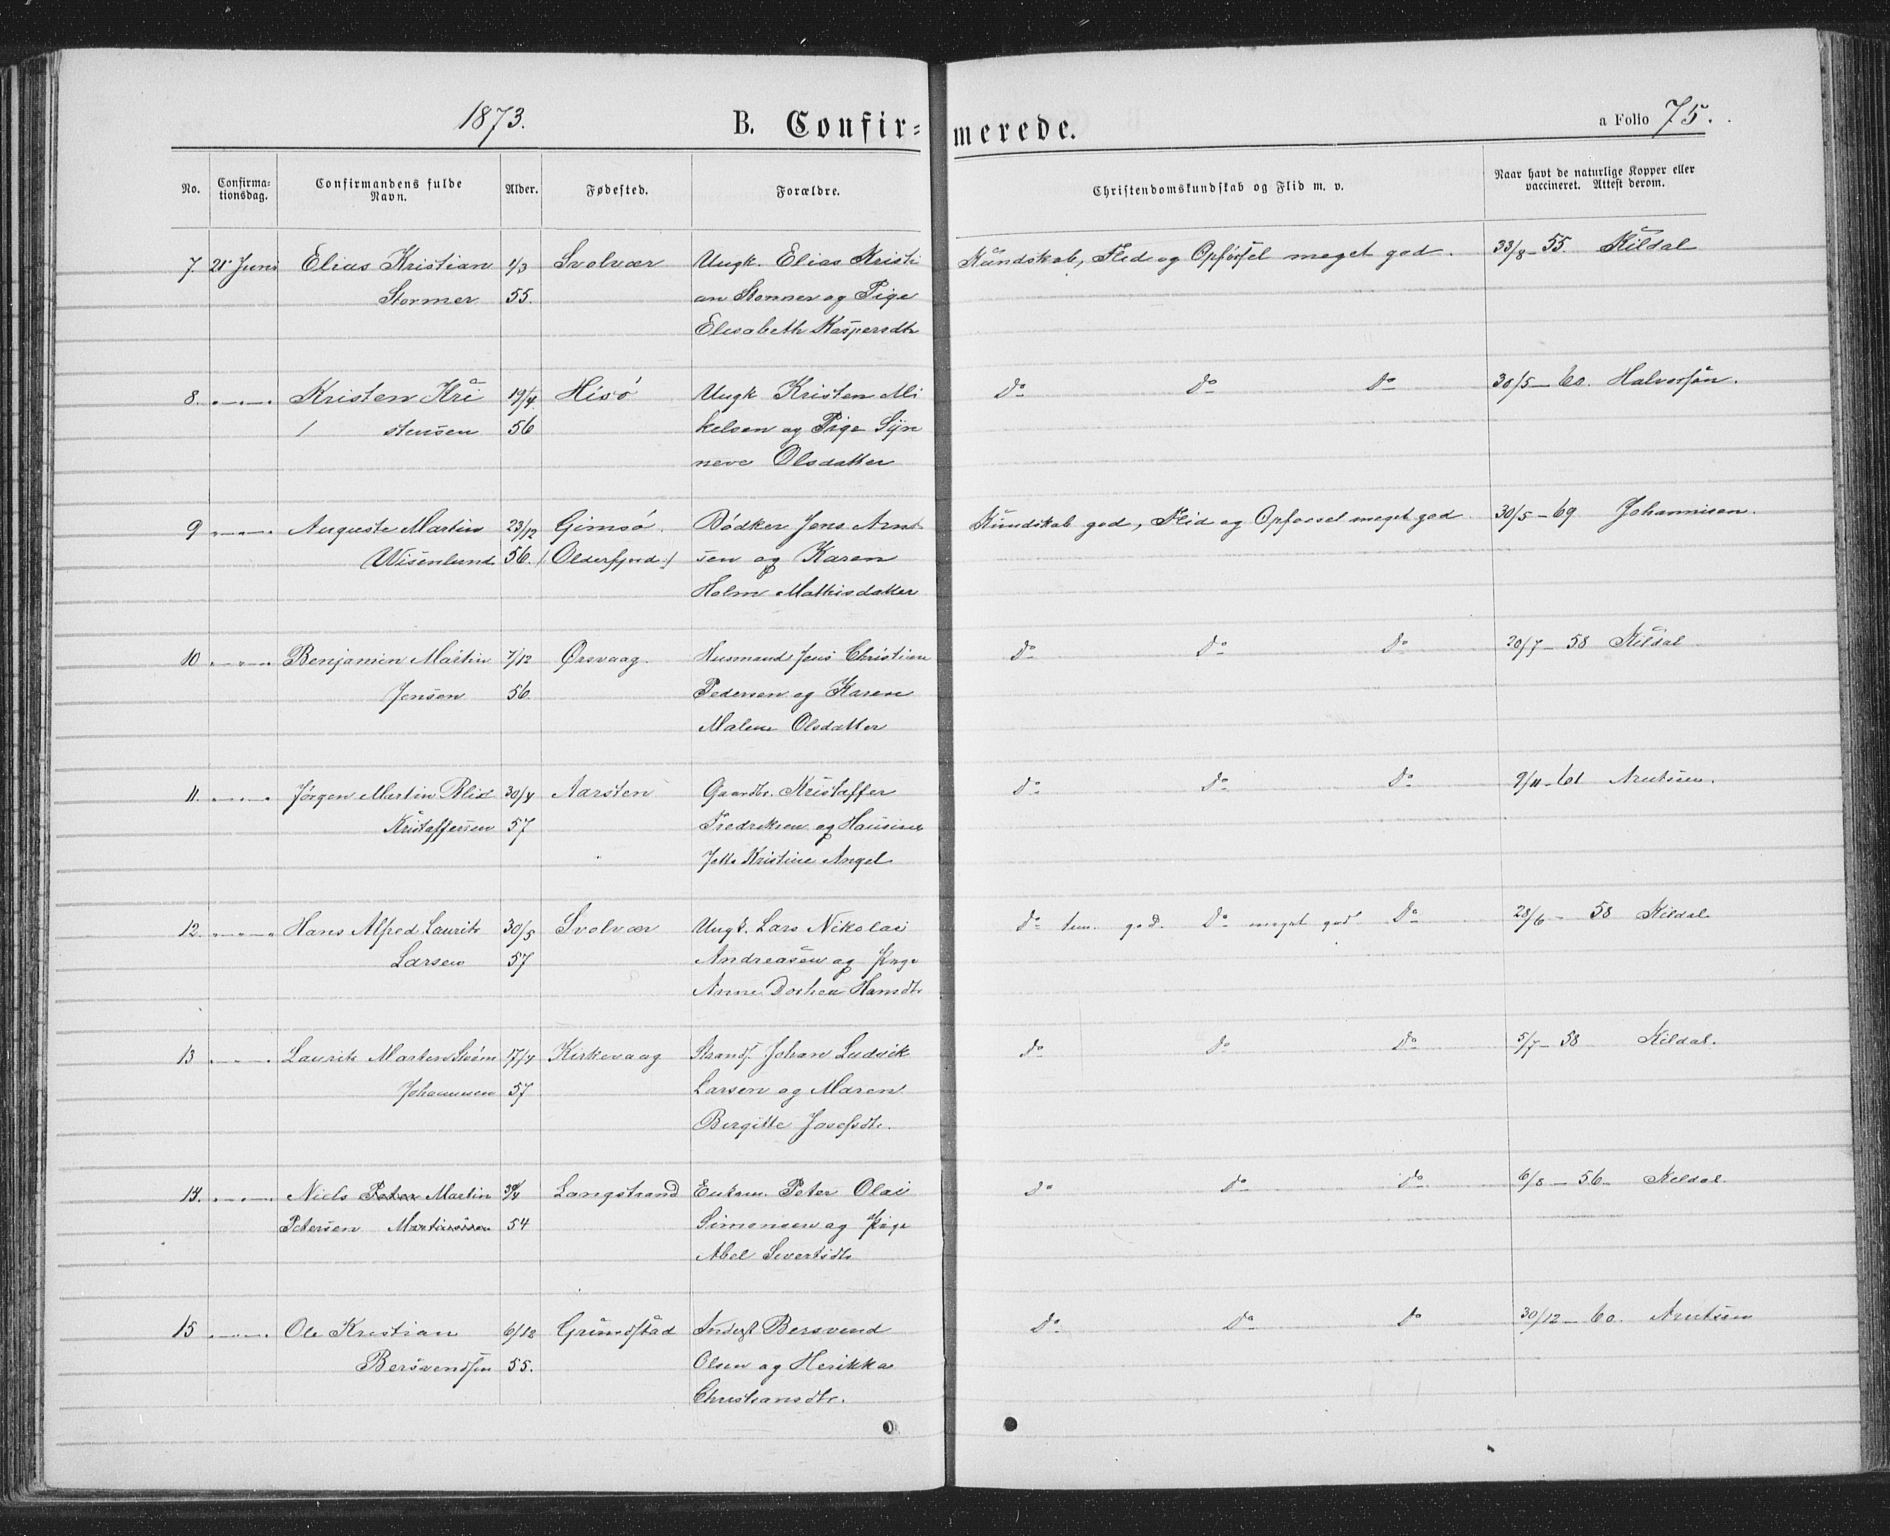 1873. B. Confir= merede. a Folio 75.
No. Confirma=tionsdag. Confirmandens fulde Navn. Alder. Fødested. Forældre. Christendomskundskab og Flid m. v. Naar havt de naturlige Kopper eller vaccineret. Attest derom.
7. 21 Juni Elias Kristian 1/3 Svolvær Ungk. Elias Kristi Kundskab, Flid og Opførsel meget god. 33/8-55. Kildal
Stormer 55. an Stormer og Pige
Elisabeth Kaspersdtr
8. Kristen Kri 19/4 Hisö Ungk Kristen Mi Do Do Do 30/5-60. Halvorsen.
stensen 56 kelsen og Pige Syn
neve Olsdatter
9 Auguste Martin 23/12 Gimsö. Bødker Jens Arnt Kundskab god, Flid og Opførsel meget god. 30/5-69 Johannisen.
Wisenlund 56. (Olderfjord.) sen og Karen
Holm Mathisdatter
10 Benjamin Martin 7/12 Ørsvaag. Husmand Jens Christian Do Do Do 20/7-58 Kildal
Jensen 56. Pedersen og Karen
Malene Olsdatter
11. Jörgen Martin Blix 30/4 Aarsten Gaardbr. Kristaffer Do Do Do 9/11-61 Arntsen.
Kristaffersen 57 Fredriksen og Hansine
Jette Kristine Angel
12. Hans Alfred Laurits 30/5 Svolvær Ungk. Lars Nikolai Do tem. god. Do meget god. Do 28/6- 58 Kildal
Larsen 57 Andreasen og Pige
Anne Dorthea Hansdtr
13 Laurits Marten Svöm 17/4 Kirkevaag Strands. Johan Ludvik Do Do Do 5/7-58 Kildal.
Johannsen 57 Larsen og Maren
Bergitte Josefsdtr.
14. Niels Peter Martin 30/4 Langstrand Enkem. Peter Olai Do Do Do 6/8-56- Kildal.
Petersen Martinussen 54 Simonsen og Pige
Abel Sivertsdtr
15 Ole Kristian 6/12 Grundstad Inderst Bersvend Do Do Do 30/12-60. Arntsen
Bersvendsen 55. Olsen og Henrikka
Christiansdtr.